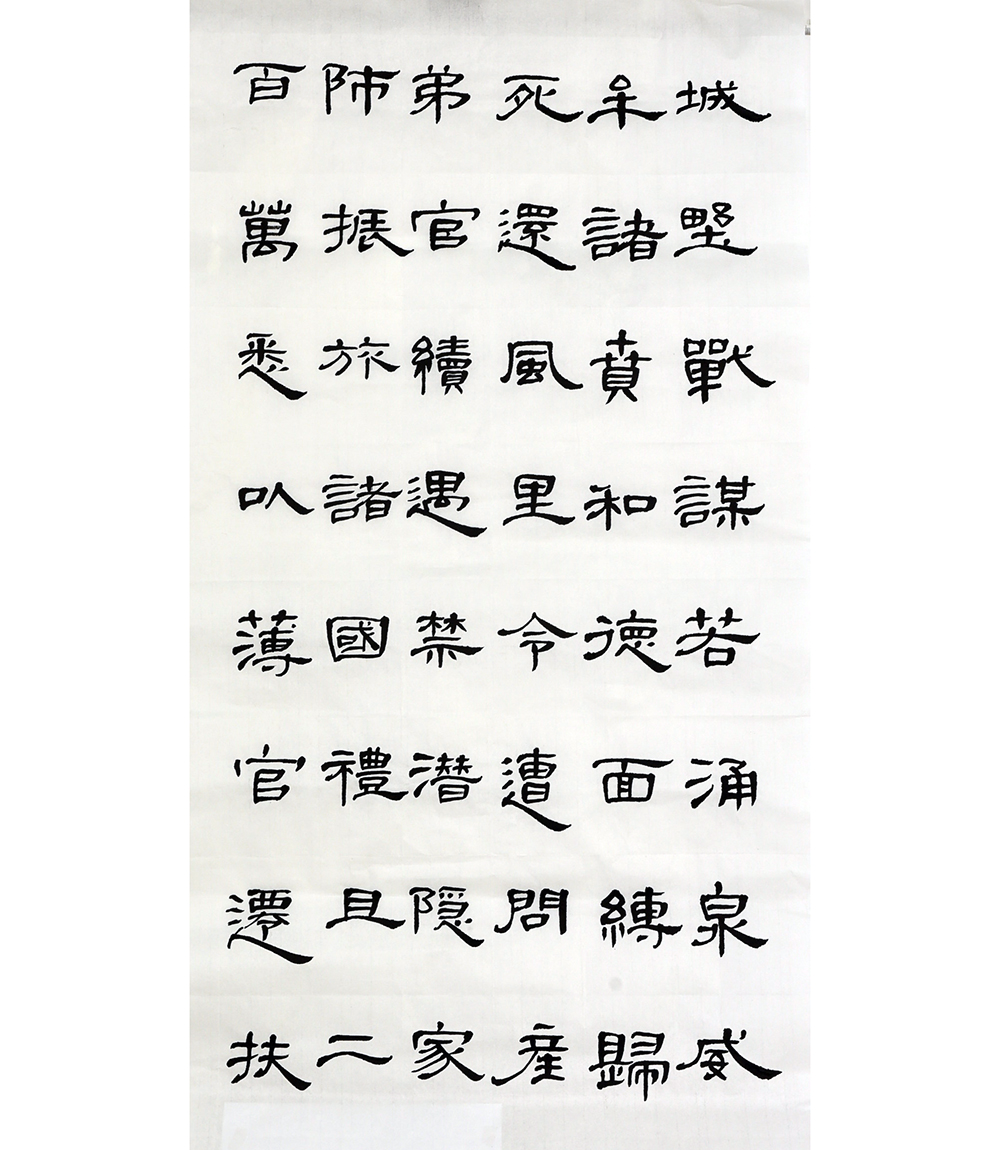 城野戰謀若涌泉威
牟諸賁和德面縛歸
死還風里令遭問産
弟官續遇禁潜隱家
師振旅諸國禮且二
百萬悉以薄官遷扶